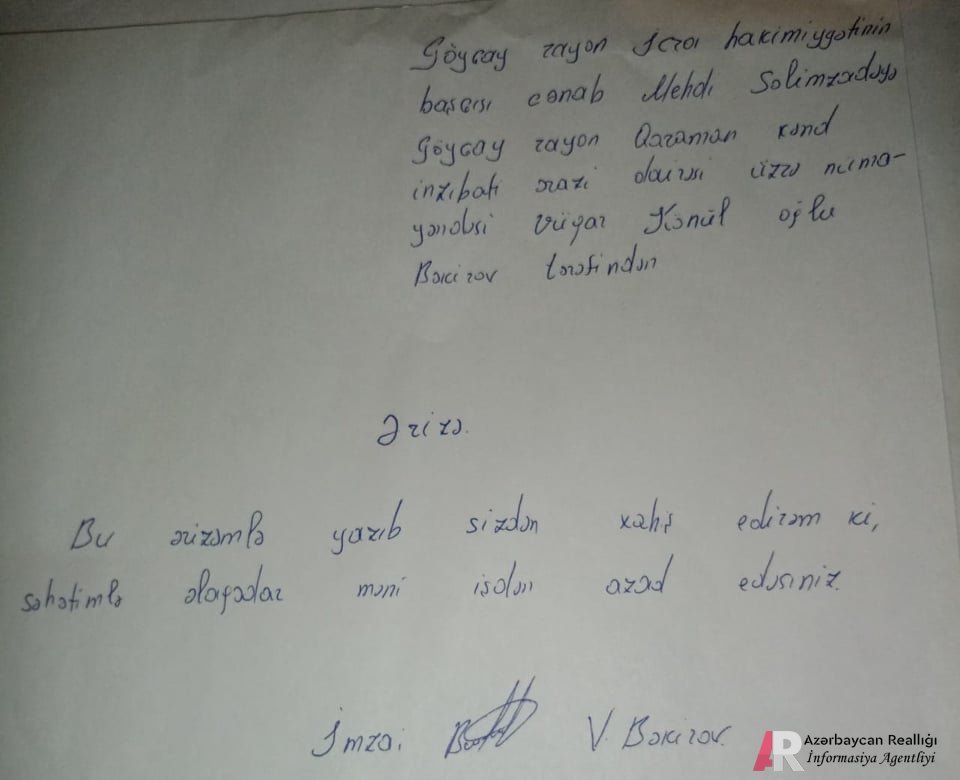 Göyçay rayon İcra hakimiyyətinin
başçısı cənab Mehdi Səlimzadəyə
Göyçay rayon Qaraman kənd
inzibati ərazi dairəsi üzrə nüma-
yəndəsi Vüqar Könül oğlu
Bəkirov tərəfindən
Ərizə.
Bu ərizəmlə yazıb sizdən xahiş edirəm ki,
səhətimlə əlaqədar məni işdən azad edəsiniz.
İmza: V. Bəkirov.
AR Azərbaycan Reallığı
İnformasiya Agentliyi